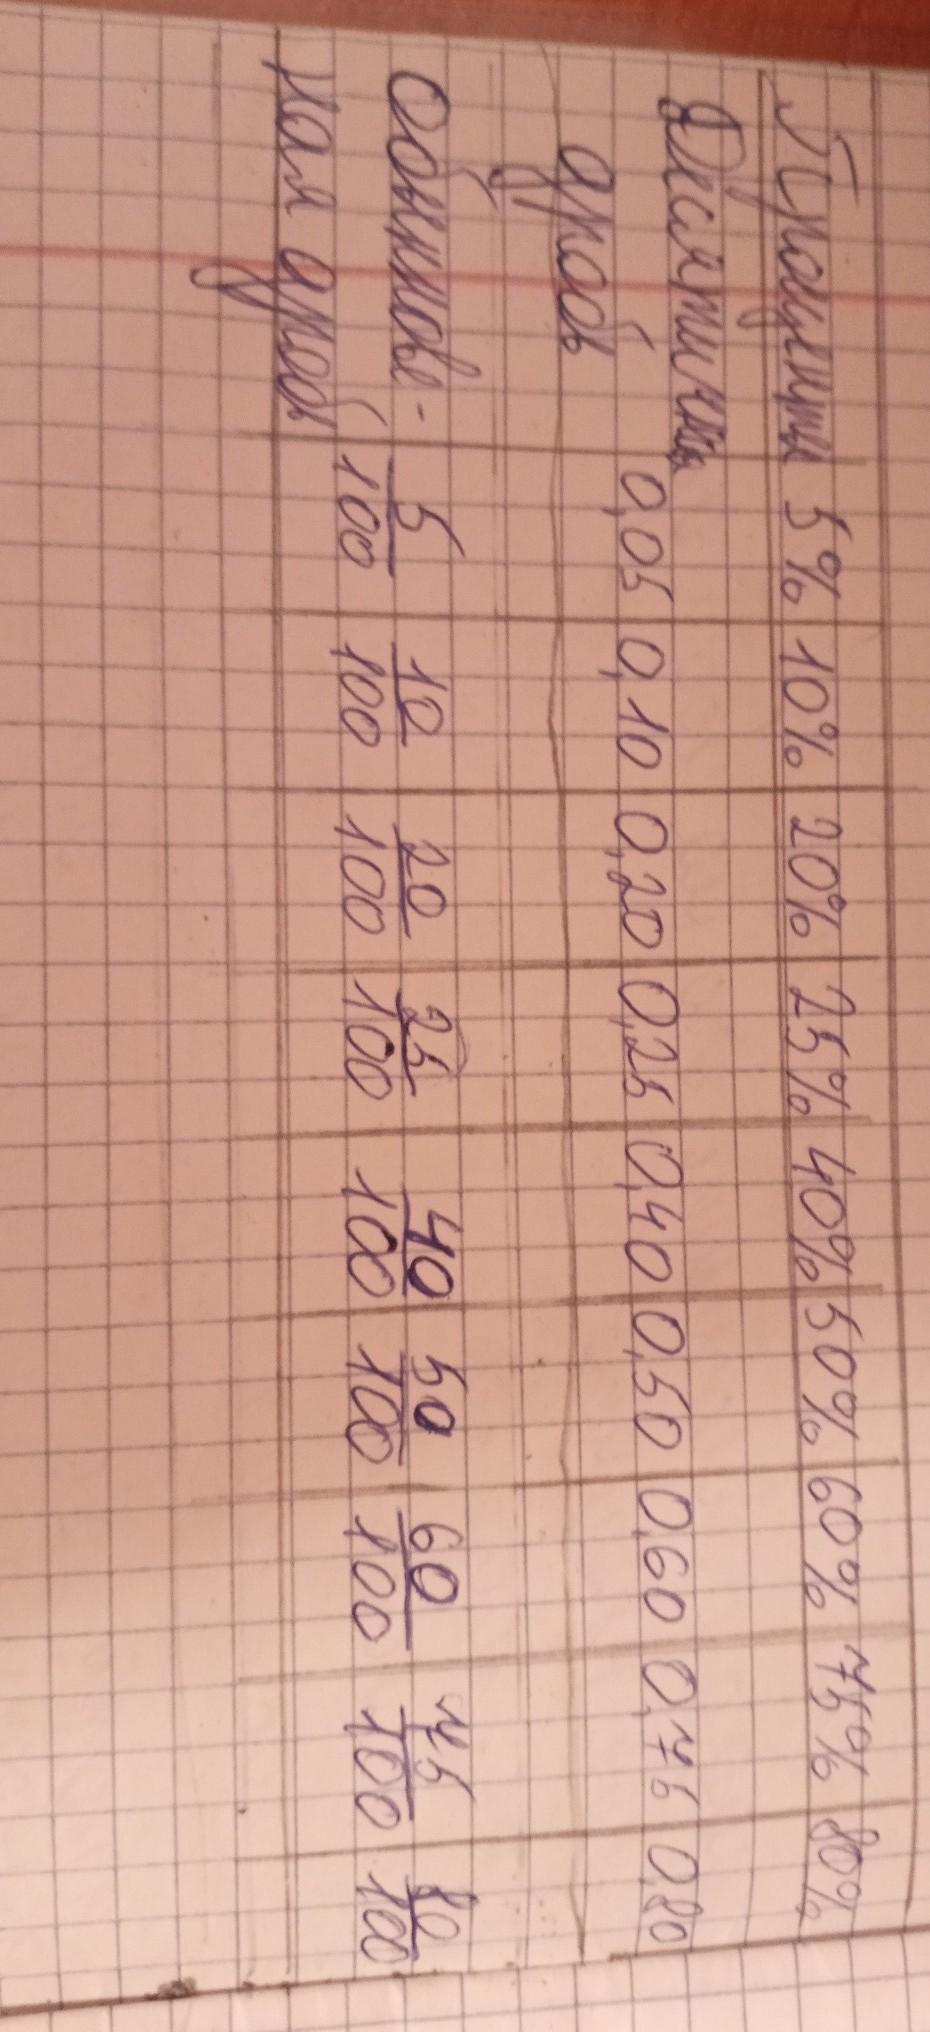 Проценты 5% 10% 20% 25% 40% 50% 60% 75% 80%
Десятичная 0,05 0,10 0,20 0,25 0,40 0,50 0,60 0,75 0,80
дробь
Обыкнове- 5/100 10/100 20/100 25/100 40/100 50/100 60/100 75/100 80/100
ная дробь